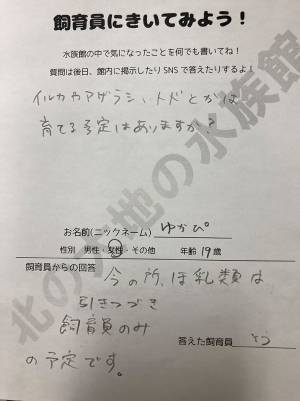 飼育員にきいてみよう!
水族館の中で気になったことを何でも書いてね!
質問は後日、館内に掲示したりSNSで答えたりするよ!
イルカやアザラシ、トドとかは
育てる予定はありますか?
お名前(ニックネーム) ゆかぴ
性別 男性・女性・その他 年齢 19歳
飼育員からの回答
今の所、ほ乳類は
引きつづき
飼育員のみ
の予定です。
答えた飼育員
北の大地の水族館